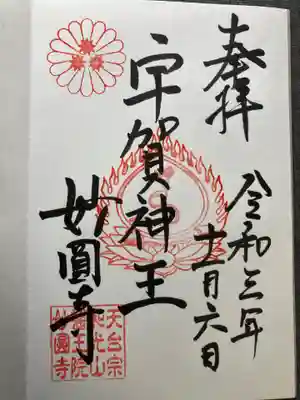 奉拝
令和三年
十一月六日
宇賀神王
妙圓寺
天台宗
和光山
興王院
妙圓寺